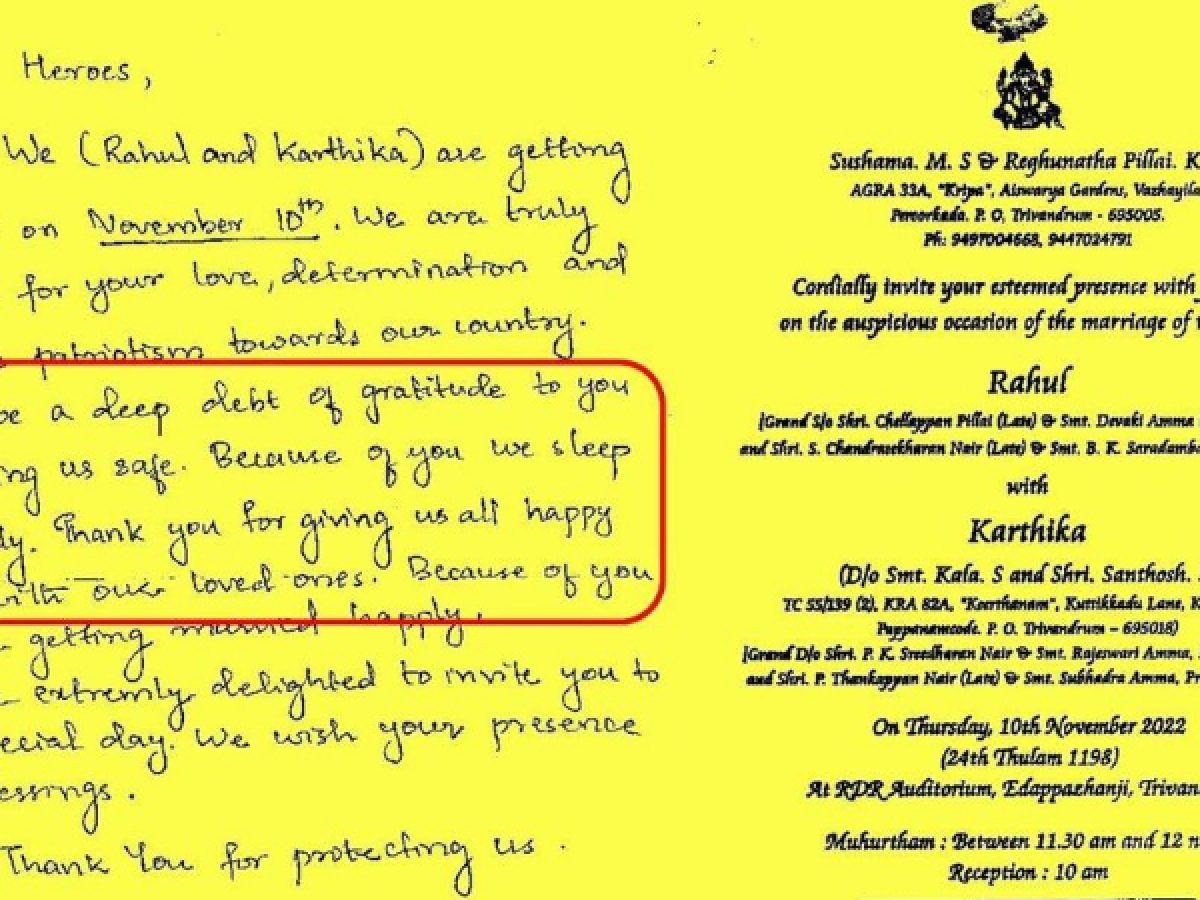 Heroes,
We (Rahul and Karthika) are getting
on November 10th. We are truly
for your love, determination and
patriotism towards our country.
be a deep debt of gratitude to you
ng us safe. Because of you we sleep
ly. Thank you for giving us all happy
with our loved ones. Because of you
getting married happily.
extremly delighted to invite you to
ecial day. We wish your presence
essings.
Thank You for protecting us.
Sushama. M. S & Reghunatha Pillai. K
AGRA 33A, "Kripa", Aiswarya Gardens, Vazhayila
Peroorkada. P. O, Trivandrum - 695005.
Ph: 9497004668, 9447024791
Cordially invite your esteemed presence with
on the auspicious occasion of the marriage of
Rahul
(Grand S/o Shri. Chellappan Pillai (Late) & Smt. Devaki Amma
and Shri. S. Chandrasekharan Nair (Late) & Smt. B. K. Saradamba
with
Karthika
(D/o Smt. Kala. S and Shri. Santhosh.
TC 55/139 (2), KRA 82A, "Keerthanam", Kuttikkadu Lane, K
Pappanamcode. P. O. Trivandrum – 695018)
(Grand D/o Shri. P. K. Sreedharan Nair & Smt. Rajeswari Amma,
and Shri. P. Thankappan Nair (Late) & Smt. Subhadra Amma, Pr
On Thursday, 10th November 2022
(24th Thulam 1198)
At RDR Auditorium, Edappazhanji, Trivan
Muhurtham : Between 11.30 am and 12 n
Reception : 10 am